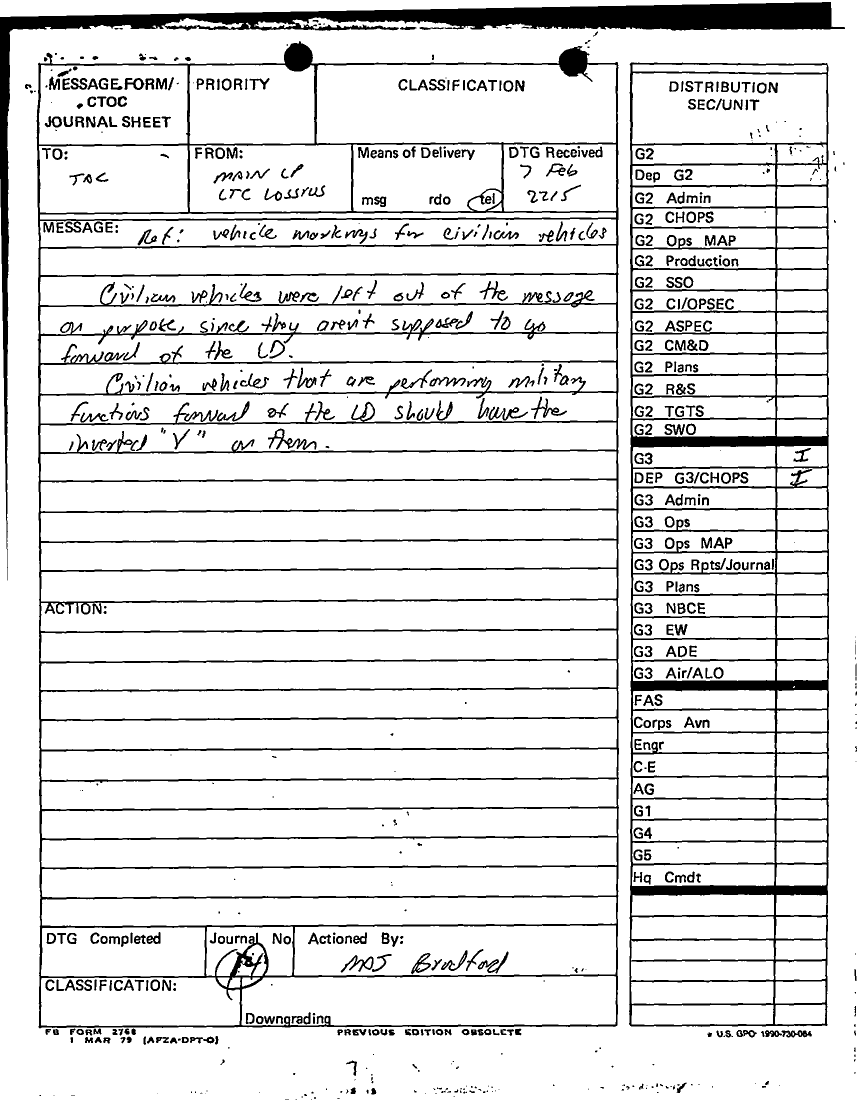 MESSAGE FORM/
CTOC
JOURNAL SHEET
PRIORITY
CLASSIFICATION
TO:
TAC
FROM:
MAIN CP
LTC
Means of Delivery
msg rdo tel
DTG Received
7 Feb
2215
MESSAGE: Ref: vehicle markings for civilian vehicles
Civilian vehicles were left out of the message
on purpose, since they aren't supposed to go
forward of the LD.
Civilian vehicles that are performing military
functions forward of the LD should have the
inverted "V" on them.
ACTION:
DTG Completed
Journal No.
Actioned By:
MAJ Bradford
CLASSIFICATION:
Downgrading
FB FORM 2768
1 MAR 79 (AFZA-DPT-O)
PREVIOUS EDITION OBSOLETE
DISTRIBUTION
SEC/UNIT
G2
Dep G2
G2 Admin
G2 CHOPS
G2 Ops MAP
G2 Production
G2 SSO
G2 CI/OPSEC
G2 ASPEC
G2 CM&D
G2 Plans
G2 R&S
G2 TGTS
G2 SWO
G3 I
DEP G3/CHOPS I
G3 Admin
G3 Ops
G3 Ops MAP
G3 Ops Rpts/Journal
G3 Plans
G3 NBCE
G3 EW
G3 ADE
G3 Air/ALO
FAS
Corps Avn
Engr
C-E
AG
G1
G4
G5
Hq Cmdt
* U.S. GPO: 1990-730-084